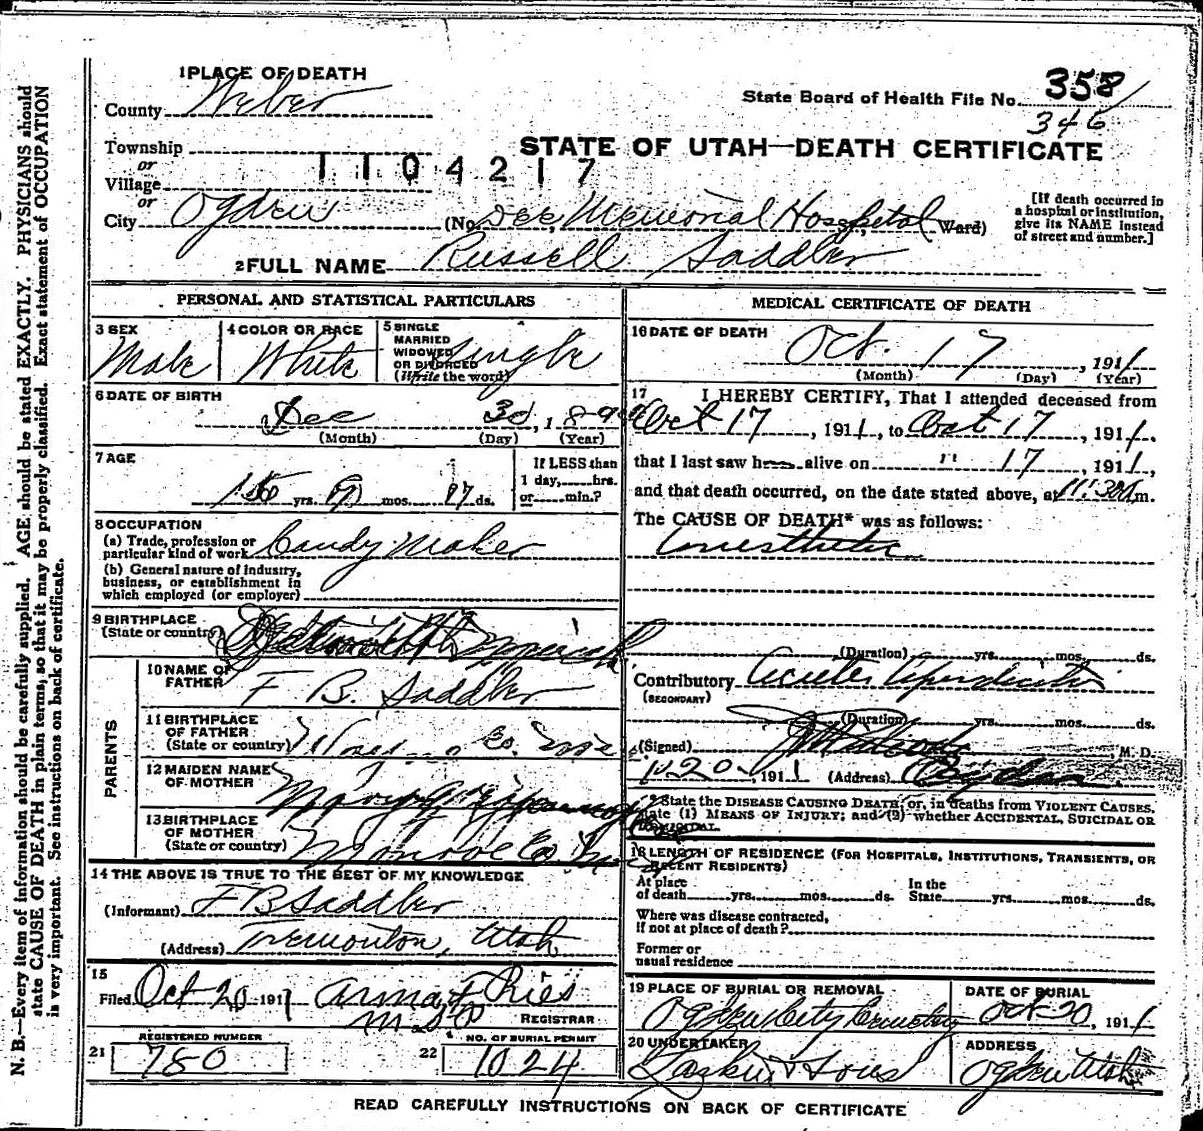 1 PLACE OF DEATH
County Weber
State Board of Health File No. 358
346
Township
or
Village
or
1104217
STATE OF UTAH—DEATH CERTIFICATE
City Ogden (No. Dee Memorial Hospital Ward)
[If death occurred in
a hospital or institution,
give its NAME instead
of street and number.]
2 FULL NAME Russell Saddler
PERSONAL AND STATISTICAL PARTICULARS
3 SEX
Male
4 COLOR OR RACE
White
5 SINGLE
MARRIED
WIDOWED
OR DIVORCED
(Write the word)
Single
6 DATE OF BIRTH
Dec
(Month) (Day) (Year)
7 AGE
yrs. mos. ds.
If LESS than
1 day, hrs.
or min.?
8 OCCUPATION
(a) Trade, profession or
particular kind of work Candy Maker
(b) General nature of industry,
business, or establishment in
which employed (or employer)
9 BIRTHPLACE
(State or country)
PARENTS
10 NAME OF
FATHER F B. Saddler
11 BIRTHPLACE
OF FATHER
(State or country) Co.
12 MAIDEN NAME
OF MOTHER
13 BIRTHPLACE
OF MOTHER
(State or country) Monroe Co
14 THE ABOVE IS TRUE TO THE BEST OF MY KNOWLEDGE
(Informant) F B Saddler
(Address) Tremonton, Utah
15
Filed Oct 20 1911
REGISTRAR
REGISTERED NUMBER
21 780
NO. OF BURIAL PERMIT
22 1024
MEDICAL CERTIFICATE OF DEATH
16 DATE OF DEATH
Oct. 17, 1911
(Month) (Day) (Year)
17 I HEREBY CERTIFY, That I attended deceased from
Oct 17, 1911, to Oct 17, 1911.
that I last saw h alive on " 17, 1911,
and that death occurred, on the date stated above, at 11:30 a m.
The CAUSE OF DEATH* was as follows:
(Duration) yrs. mos. ds.
Contributory
(SECONDARY)
(Duration) yrs. mos. ds.
(Signed) M. D.
10 20, 1911 (Address) Ogden
* State the DISEASE CAUSING DEATH, or, in deaths from VIOLENT CAUSES,
state (1) MEANS OF INJURY; and (2) whether ACCIDENTAL, SUICIDAL OR
HOMICIDAL.
18 LENGTH OF RESIDENCE (FOR HOSPITALS, INSTITUTIONS, TRANSIENTS, OR
RECENT RESIDENTS)
At place
of death yrs. mos. ds.
In the
State yrs. mos. ds.
Where was disease contracted,
if not at place of death?
Former or
usual residence
19 PLACE OF BURIAL OR REMOVAL
Ogden City Cemetery
DATE OF BURIAL
Oct 20, 1911
20 UNDERTAKER
& Sons
ADDRESS
Ogden Utah
READ CAREFULLY INSTRUCTIONS ON BACK OF CERTIFICATE
N. B.—Every item of information should be carefully supplied. AGE should be stated EXACTLY. PHYSICIANS should
state CAUSE OF DEATH in plain terms, so that it may be properly classified. Exact statement of OCCUPATION
is very important. See instructions on back of certificate.